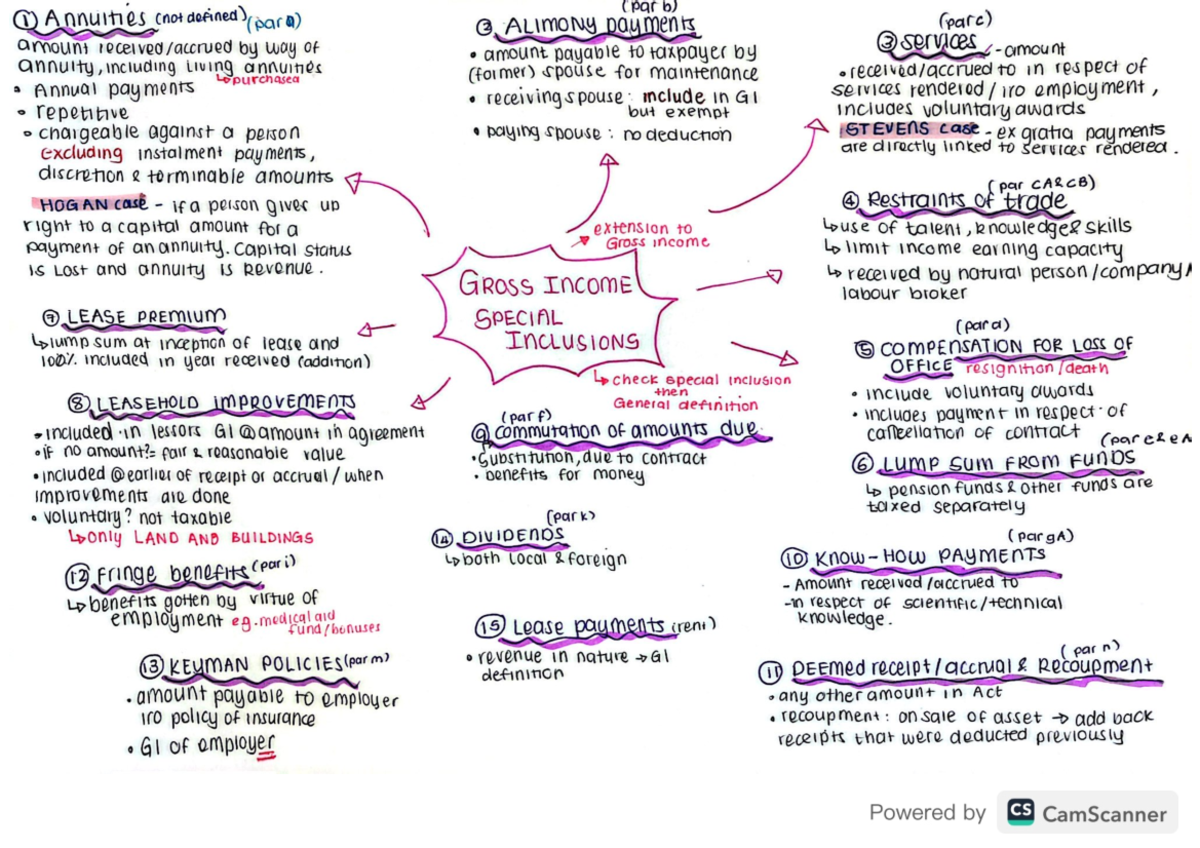 ① Annuities (not defined) (par a)
amount received/accrued by way of
annuity, including living annuities
↳ purchased
• Annual payments
• repetitive
• chargeable against a person
excluding instalment payments,
discretion & terminable amounts
HOGAN case - if a person gives up
right to a capital amount for a
payment of an annuity. Capital status
is lost and annuity is revenue.
(par b)
② ALIMONY payments
• amount payable to taxpayer by
(former) spouse for maintenance
• receiving spouse: include in GI
but exempt
• paying spouse: no deduction
(par c)
③ services - amount
• received/accrued to in respect of
services rendered / iro employment,
includes voluntary awards
STEVENS case - ex gratia payments
are directly linked to services rendered.
(par CA&CB)
④ Restraints of trade
↳ use of talent, knowledge & skills
↳ limit income earning capacity
↳ received by natural person/company/
labour broker
extension to
Gross income
GROSS INCOME
SPECIAL
INCLUSIONS
↳ check special inclusion
then
General definition
(par d)
⑤ COMPENSATION FOR LOSS OF
OFFICE resignition/death
• include voluntary awards
• includes payment in respect of
cancellation of contract
(par e & eA
⑥ LUMP SUM FROM FUNDS
↳ pension funds & other funds are
taxed separately
⑦ LEASE PREMIUM
↳ lump sum at inception of lease and
100% included in year received (addition)
⑧ LEASEHOLD IMPROVEMENTS
• included in lessors GI @ amount in agreement
• if no amount?= fair & reasonable value
• included @ earlier of receipt or accrual / when
improvements are done
• voluntary? not taxable
↳ only LAND AND BUILDINGS
(par f)
⑨ commutation of amounts due
• substitution, due to contract
• benefits for money
(par gA)
⑩ KNOW-HOW PAYMENTS
- Amount received/accrued to
-in respect of scientific/technical
knowledge.
(par n)
⑪ DEEMED receipt/accrual & Recoupment
• any other amount in Act
• recoupment: on sale of asset → add back
receipts that were deducted previously
⑫ Fringe benefits (par i)
↳ benefits gotten by virtue of
employment eg. medical aid
fund/bonuses
⑬ KEYMAN POLICIES (par m)
• amount payable to employer
iro policy of insurance
• GI of employer
(par k)
⑭ DIVIDENDS
↳ both local & foreign
⑮ Lease payments (rent)
• revenue in nature → GI
definition
Powered by CS CamScanner